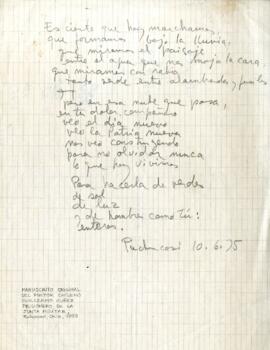 Es cierto que hoy marchamos
que formamos bajo la lluvia,
que miramos el paisaje,
entre el agua que nos moja la cara,
que miramos con rabia
tanto verde entre alambradas,
pero en esa nube que pasa,
en tu dolor compañero
veo el día nuevo
veo la Patria nueva
nos veo construyendo
para no olvidar nunca
lo que hoy vivimos
Para hacerla de verdes
de sol
de luz
y de hombres como tú:
enteros.
Puchuncaví 10.6.75
MANUSCRITO ORIGINAL
DEL PINTOR CHILENO
GUILLERMO NUÑEZ
PRISIONERO DE LA
JUNTA MILITAR,